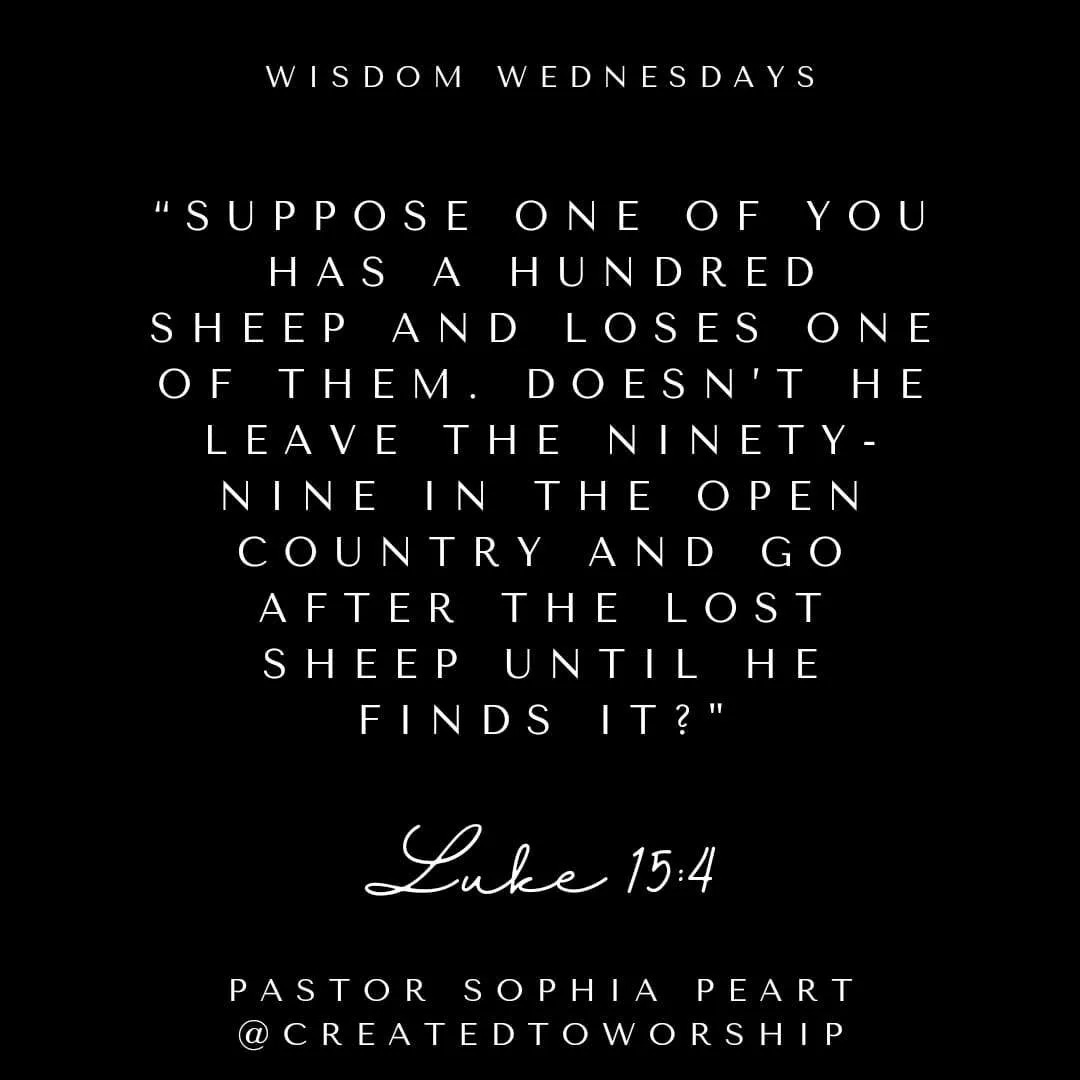 WISDOM WEDNESDAYS
“SUPPOSE ONE OF YOU
HAS A HUNDRED
SHEEP AND LOSES ONE
OF THEM. DOESN'T HE
LEAVE THE NINETY-
NINE IN THE OPEN
COUNTRY AND GO
AFTER THE LOST
SHEEP UNTIL HE
FINDS IT?"
Luke 15:4
PASTOR SOPHIA PEART
@CREATEDTOWORSHIP